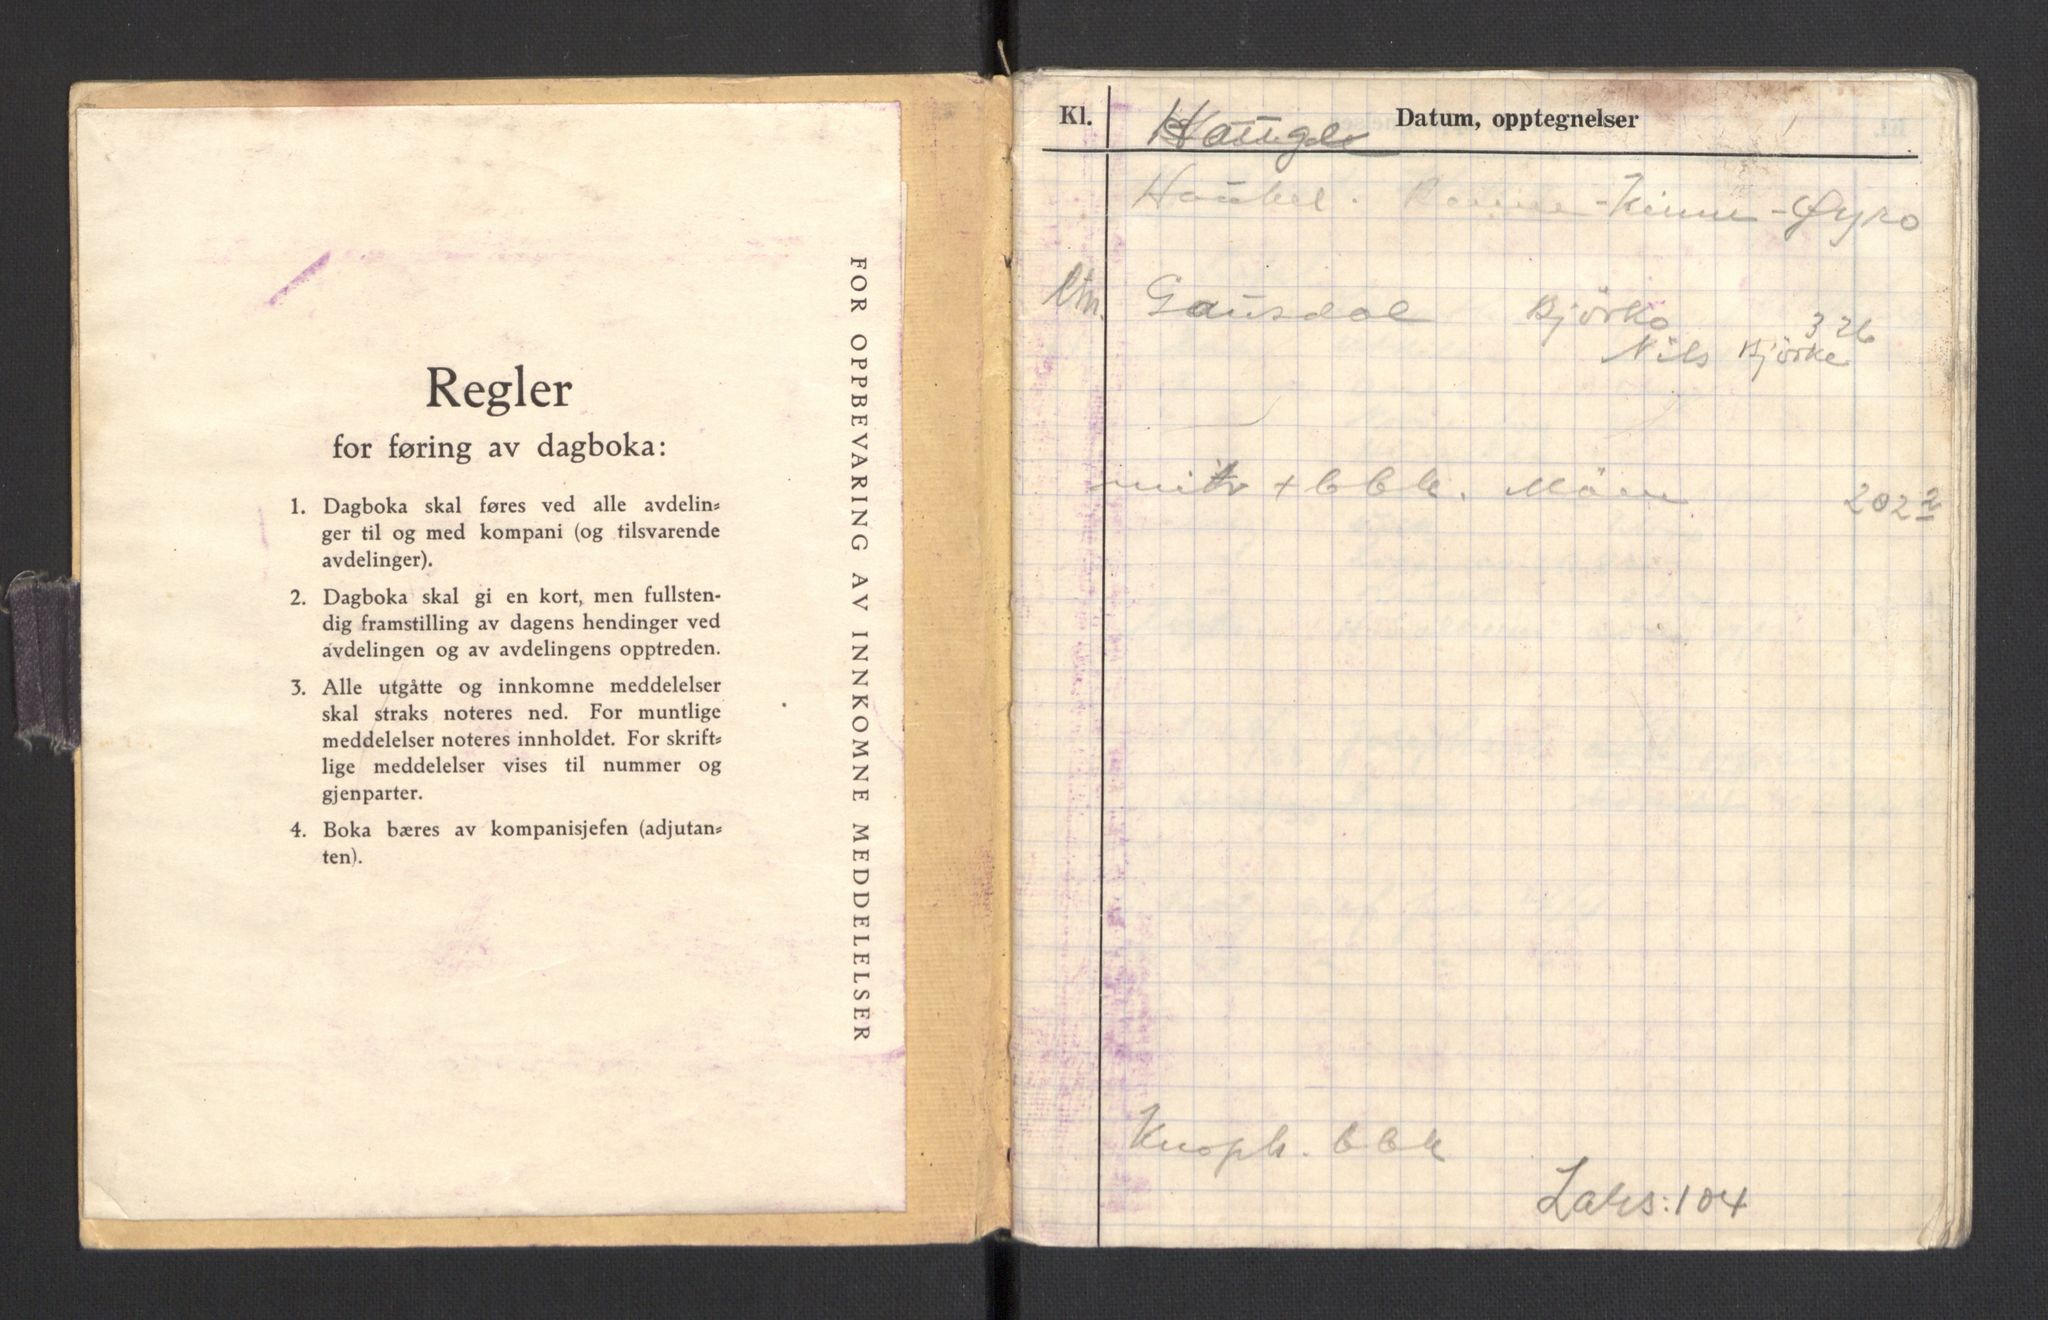 Regler
for føring av dagboka:
1. Dagboka skal føres ved alle avdelin=
ger til og med kompani (og tilsvarende
avdelinger).
2. Dagboka skal gi en kort, men fullsten-
dig framstilling av dagens hendinger ved
avdelingen og av avdelingens opptreden.
3. Alle utgåtte og innkomne meddelelser
skal straks noteres ned. For muntlige
meddelelser noteres innholdet. For skrift=
lige meddelelser vises til nummer og
gjenparter.
4. Boka bæres av kompanisjefen (adjutan=
ten).
FOR OPPBEVARING AV INNKOMNE MEDDELELSER
Kl. Datum, opptegnelser
Øyro
Gausdal Björke
326
Nils Björke
mitr + bbk. 202
Knoph. bbk
Lars: 104